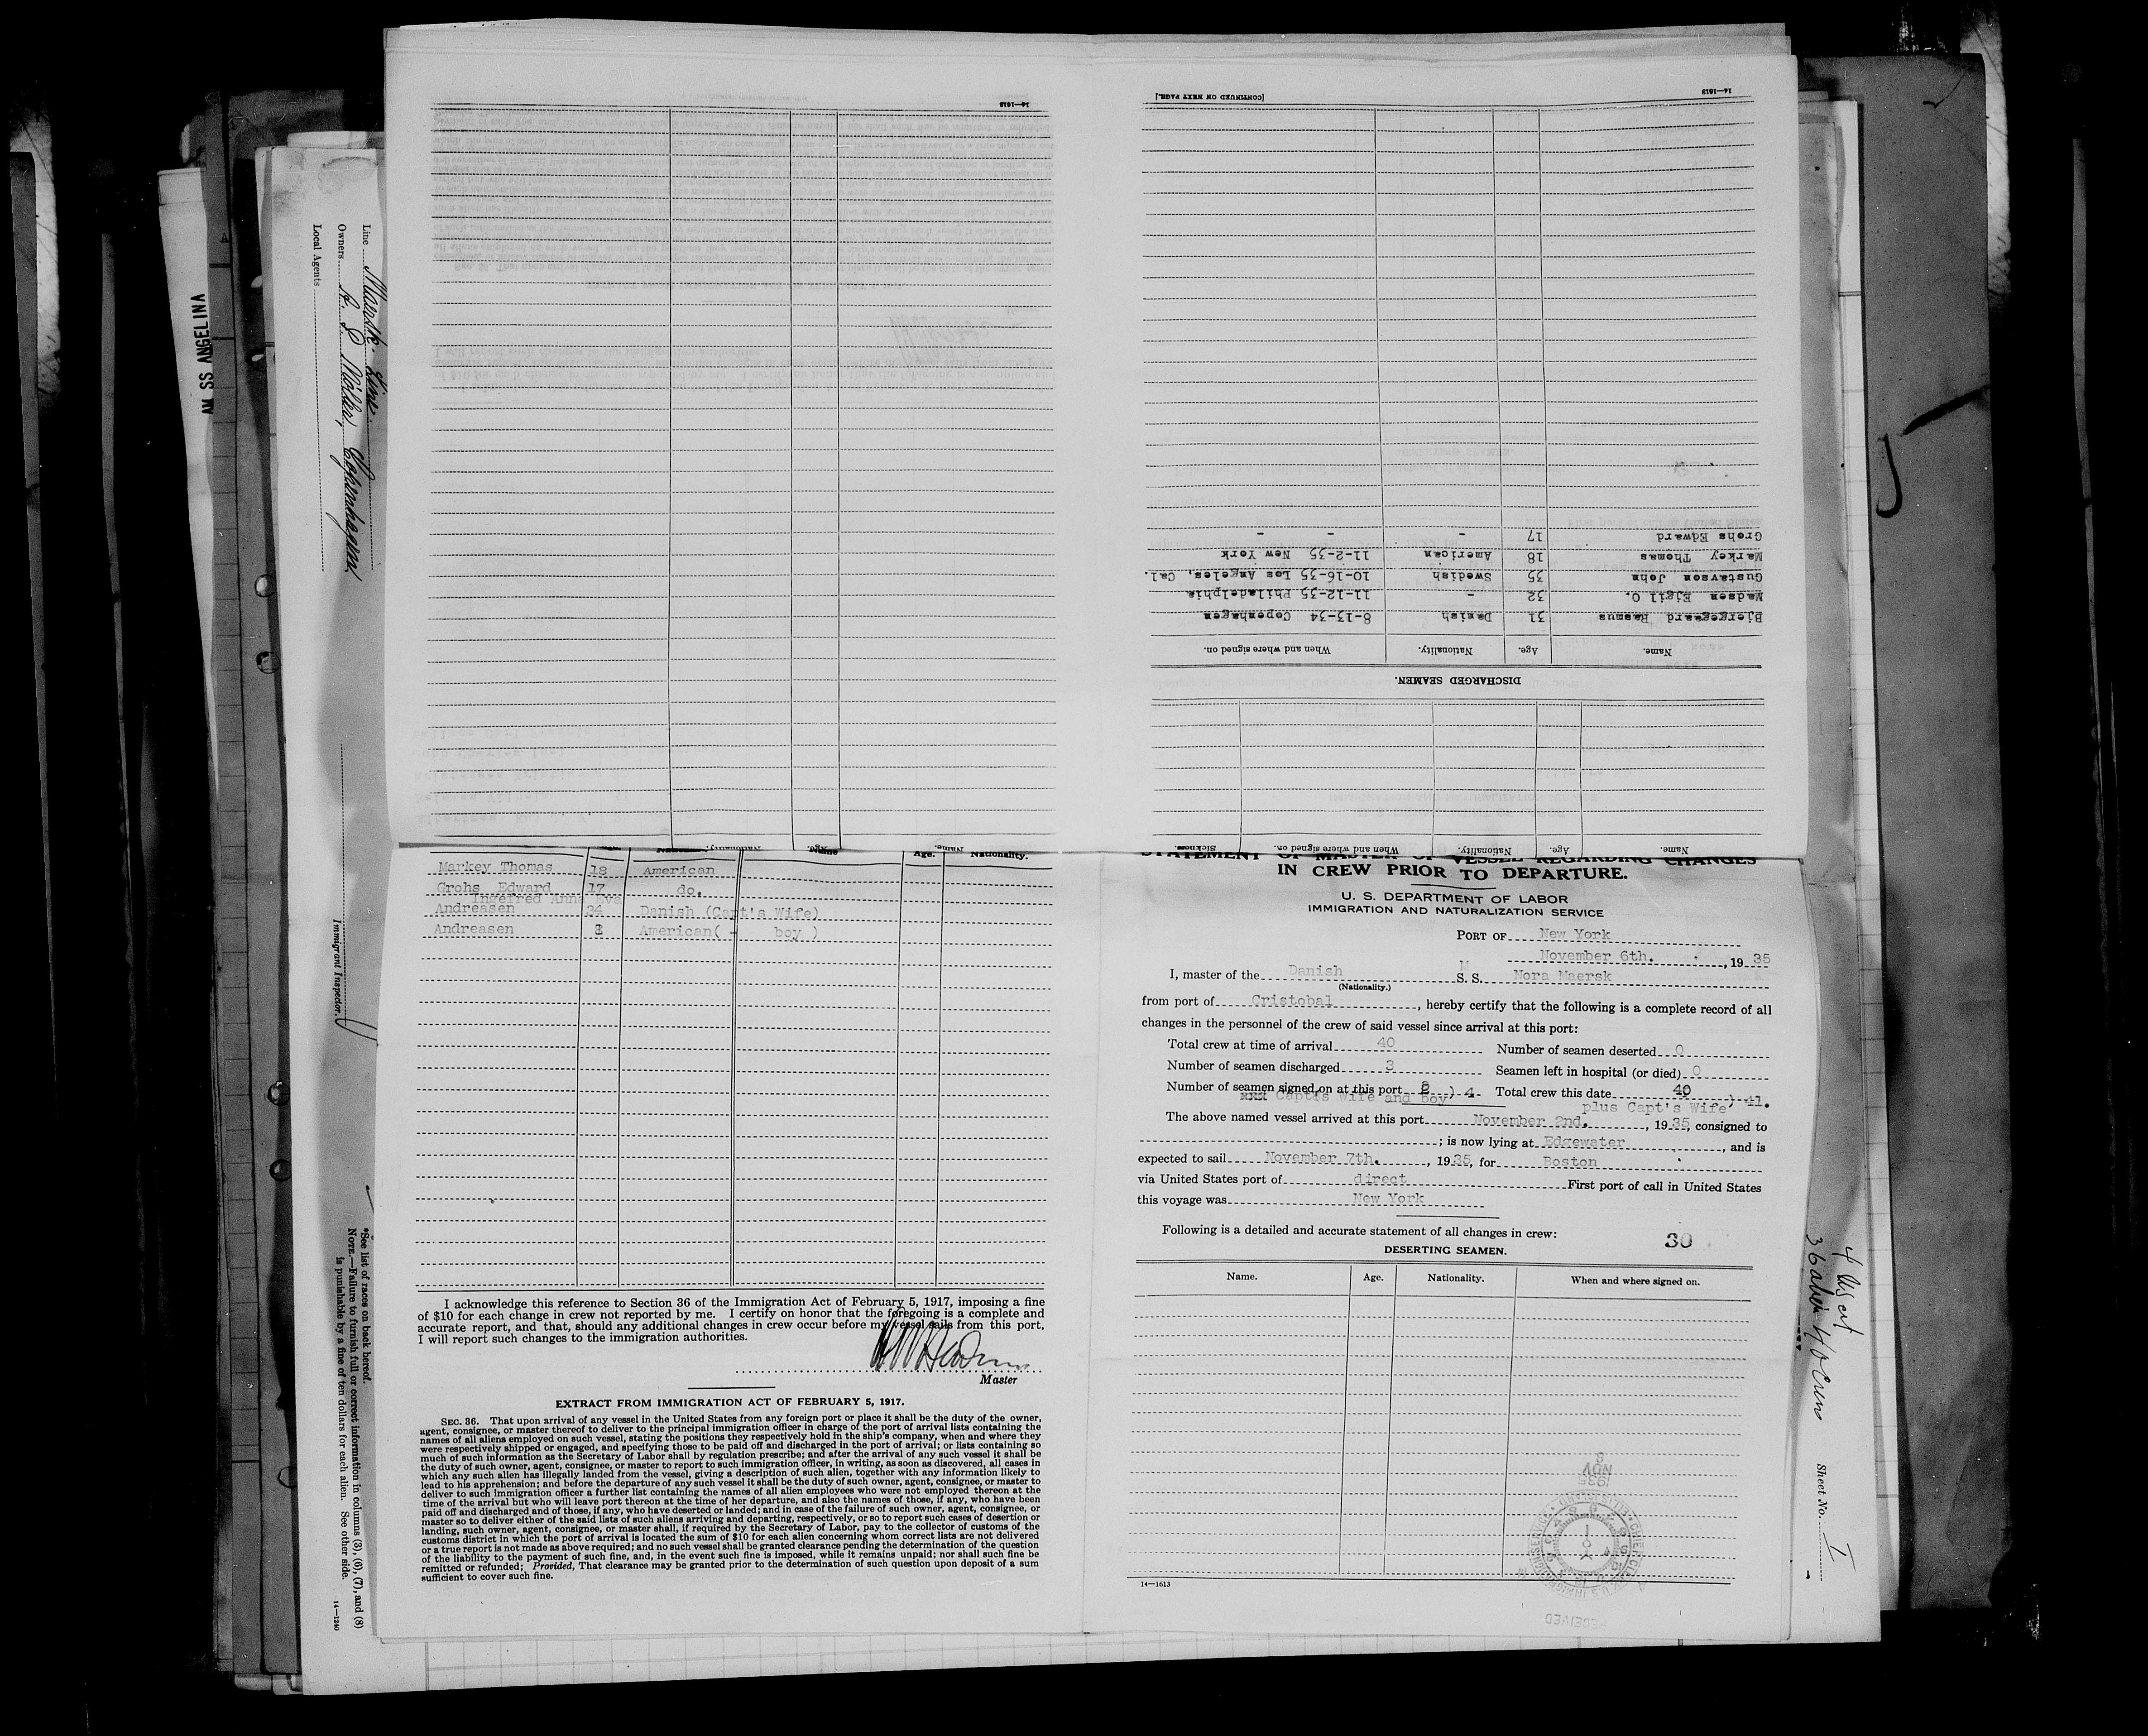 14—1613
[CONTINUED ON NEXT PAGE.]
14—1613
Grohs Edward 17 - - -
Markey Thomas 18 American 11-2-35 New York
Gustavson John 35 Swedish 10-16-35 Los Angeles, Cal.
Madsen Ejgil O. 32 - 11-12-35 Philadelphia
Bjergegaard Rasmus 31 Danish 8-13-34 Copenhagen
Name. Age. Nationality. When and where signed on.
DISCHARGED SEAMEN.
Name. Age. Nationality. When and where signed on. Sickness.
Name. Age. Nationality.
AM SS ANGELINA
Line Maersk Line.
Owners A. P. Möller, Copenhagen
Local Agents
Immigrant Inspector.
*See list of races on back hereof.
NOTE.—Failure to furnish full or correct information in columns (3), (6), (7), and (8)
is punishable by a fine of ten dollars for each alien. See other side.
14—1240
Name Age. Nationality.
Markey Thomas 18 American
Grohs Edward 17 do.
Ingefred Anna Eva
Andreasen 34 Danish (Capt's Wife)
Andreasen American( - boy )
I acknowledge this reference to Section 36 of the Immigration Act of February 5, 1917, imposing a fine
of $10 for each change in crew not reported by me. I certify on honor that the foregoing is a complete and
accurate report, and that, should any additional changes in crew occur before my vessel sails from this port,
I will report such changes to the immigration authorities.
Master
EXTRACT FROM IMMIGRATION ACT OF FEBRUARY 5, 1917.
SEC. 36. That upon arrival of any vessel in the United States from any foreign port or place it shall be the duty of the owner,
agent, consignee, or master thereof to deliver to the principal immigration officer in charge of the port of arrival lists containing the
names of all aliens employed on such vessel, stating the positions they respectively hold in the ship's company, when and where they
were respectively shipped or engaged, and specifying those to be paid off and discharged in the port of arrival; or lists containing so
much of such information as the Secretary of Labor shall by regulation prescribe; and after the arrival of any such vessel it shall be
the duty of such owner, agent, consignee, or master to report to such immigration officer, in writing, as soon as discovered, all cases in
which any such alien has illegally landed from the vessel, giving a description of such alien, together with any information likely to
lead to his apprehension; and before the departure of any such vessel it shall be the duty of such owner, agent, consignee, or master to
deliver to such immigration officer a further list containing the names of all alien employees who were not employed thereon at the
time of the arrival but who will leave port thereon at the time of her departure, and also the names of those, if any, who have been
paid off and discharged and of those, if any, who have deserted or landed; and in case of the failure of such owner, agent, consignee, or
master so to deliver either of the said lists of such aliens arriving and departing, respectively, or so to report such cases of desertion or
landing, such owner, agent, consignee, or master shall, if required by the Secretary of Labor, pay to the collector of customs of the
customs district in which the port of arrival is located the sum of $10 for each alien concerning whom correct lists are not delivered
or a true report is not made as above required; and no such vessel shall be granted clearance pending the determination of the question
of the liability to the payment of such fine, and, in the event such fine is imposed, while it remains unpaid; nor shall such fine be
remitted or refunded; Provided, That clearance may be granted prior to the determination of such question upon deposit of a sum
sufficient to cover such fine.
STATEMENT OF MASTER OF VESSEL REGARDING CHANGES
IN CREW PRIOR TO DEPARTURE.
U. S. DEPARTMENT OF LABOR
IMMIGRATION AND NATURALIZATION SERVICE
PORT OF New York
November 6th. , 19 35
I, master of the Danish M S. S. Nora Maersk
(Nationality.)
from port of Cristobal , hereby certify that the following is a complete record of all
changes in the personnel of the crew of said vessel since arrival at this port:
Total crew at time of arrival 40 Number of seamen deserted 0
Number of seamen discharged 3 Seamen left in hospital (or died) 0
Number of seamen signed on at this port ) 4 Total crew this date 40
xxx Capt's Wife and boy) plus Capt's Wife) 41.
The above named vessel arrived at this port November 2nd. , 19 35, consigned to
; is now lying at Edgewater , and is
expected to sail November 7th. , 19 35, for Boston
via United States port of direct First port of call in United States
this voyage was New York
Following is a detailed and accurate statement of all changes in crew:
30
DESERTING SEAMEN.
Name. Age. Nationality. When and where signed on.
1935
NOV
8
RECEIVED
14—1613
4 US cit
36 alien 40 Crew
Sheet No. I